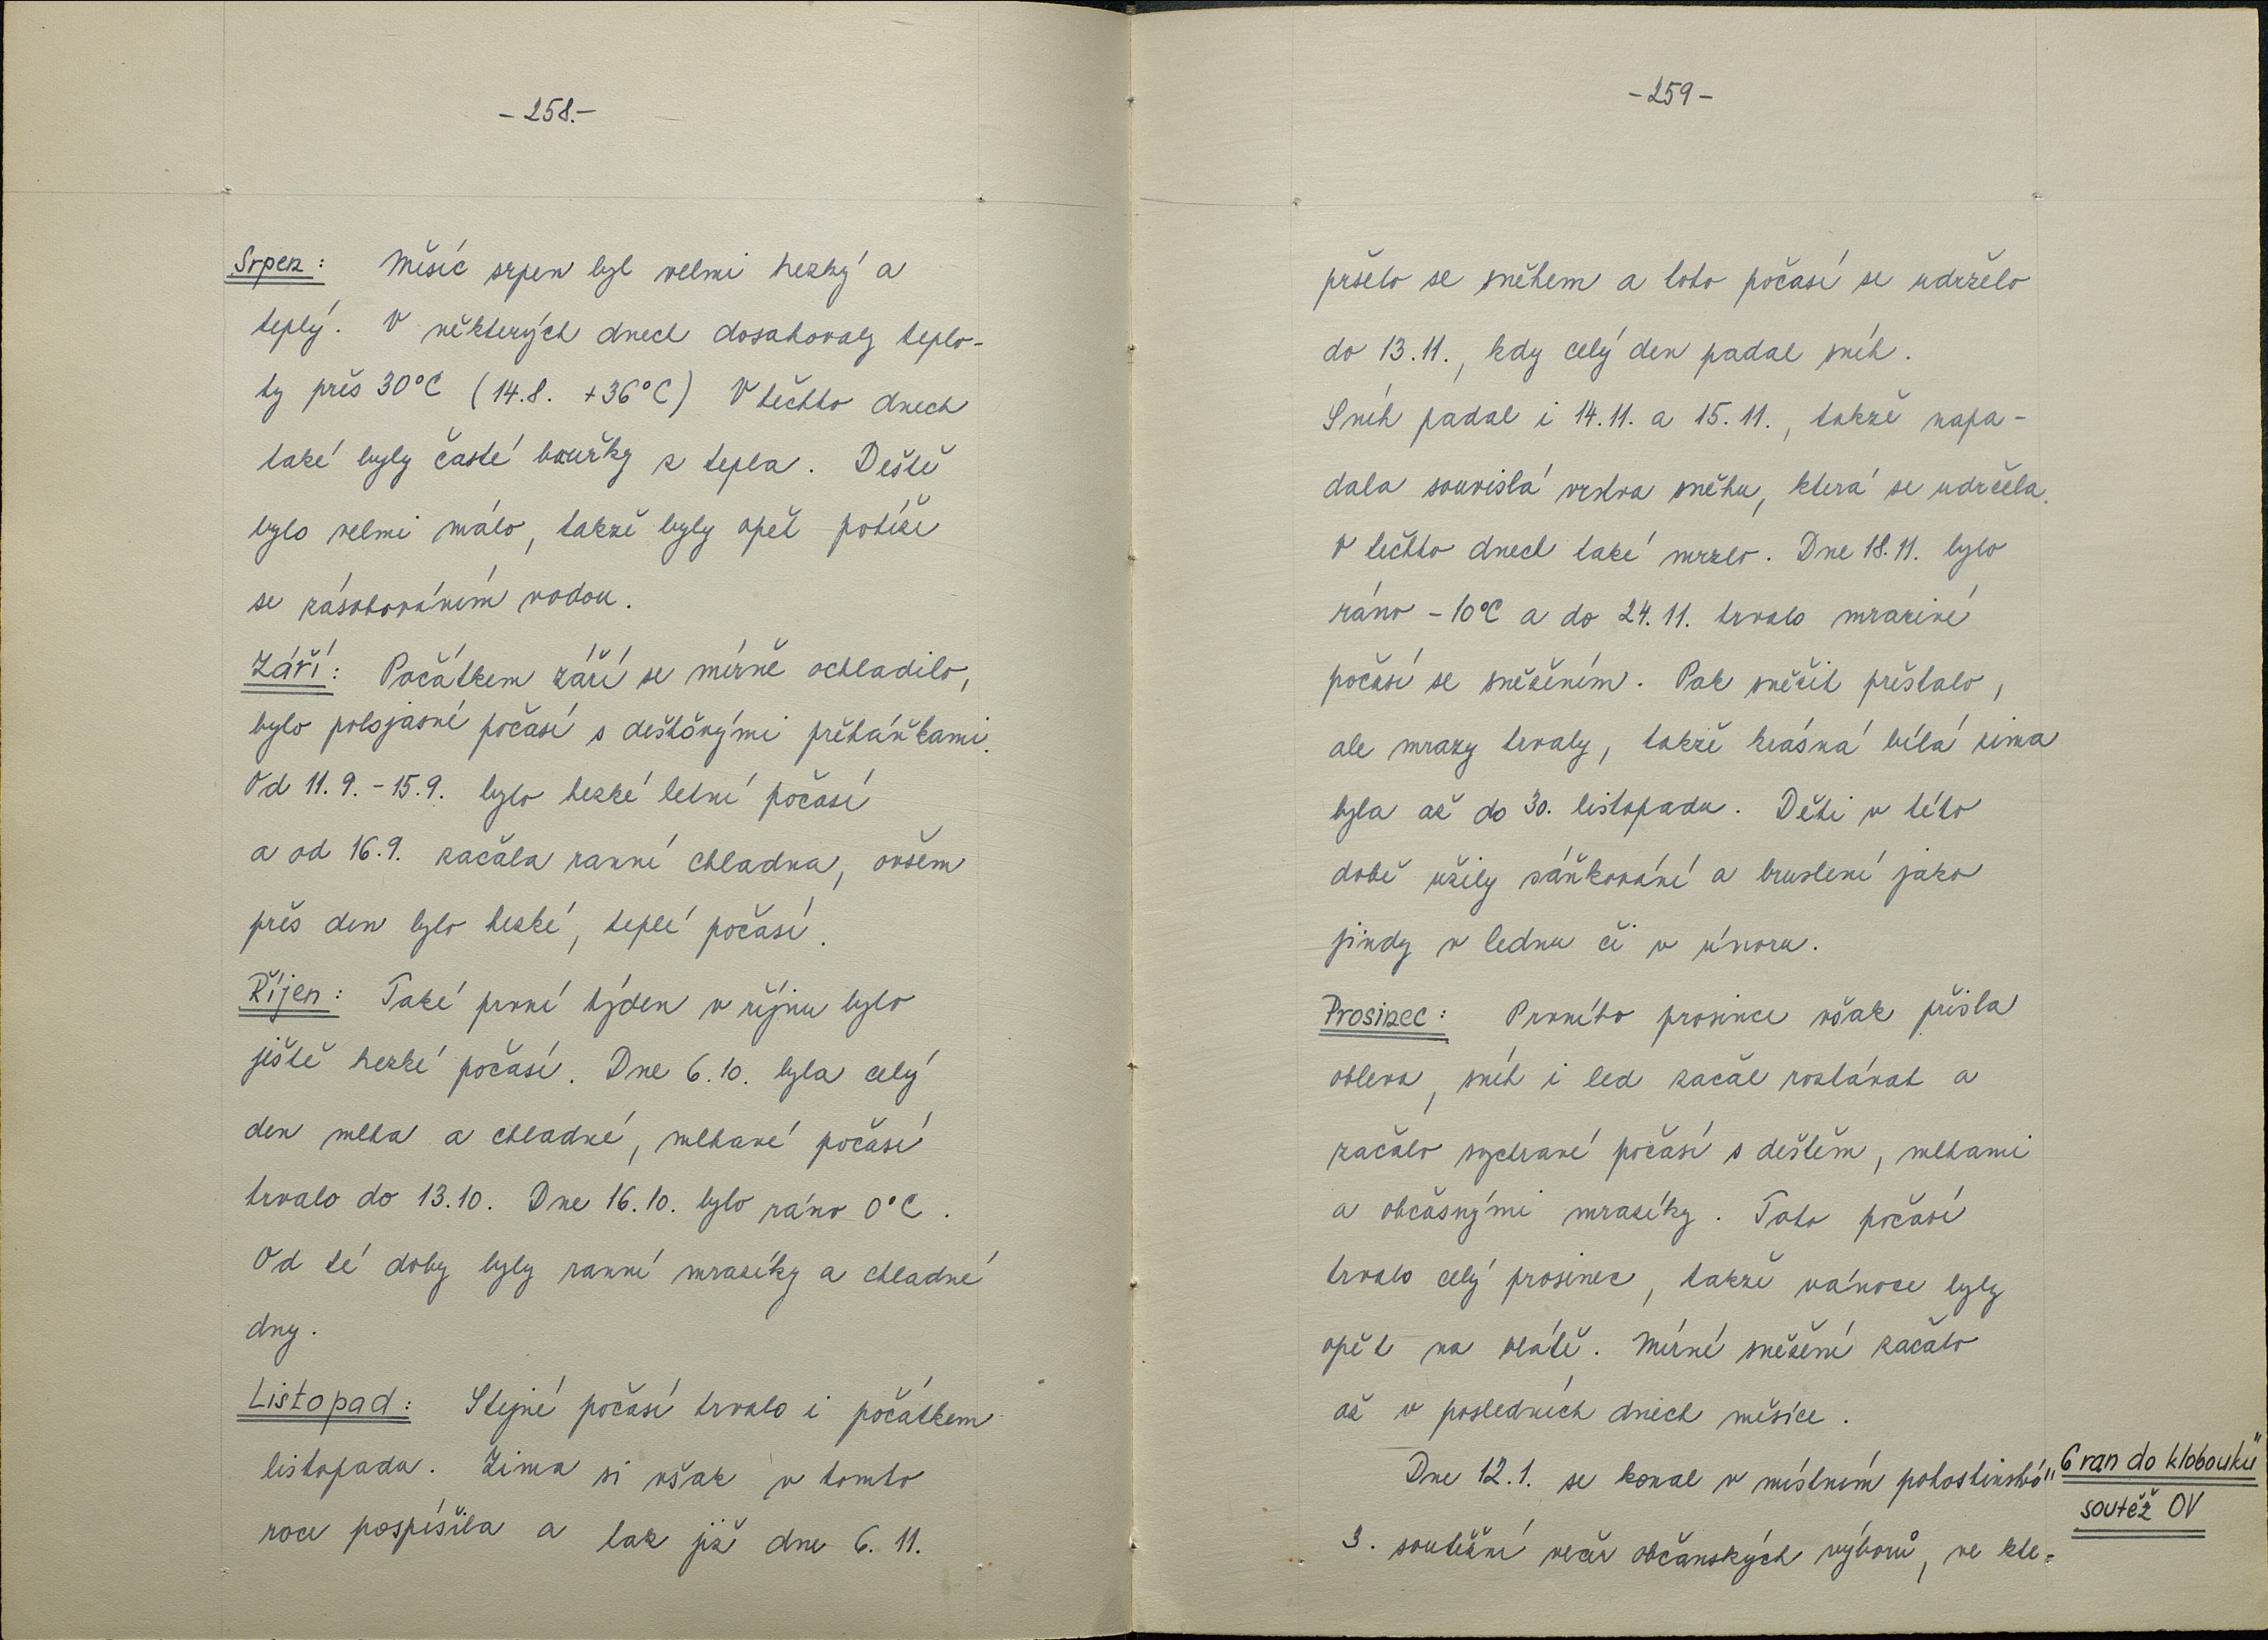 - 258. -
Srpen: Měsíc srpen byl velmi hezký a
teplý. V některých dnech dosahovaly teplo-
ty přes 30°C (14.8. +36°C) V těchto dnech
také byly časté bouřky z tepla. Deště
bylo velmi málo, takže byly opět potíže
se zásobováním vodou.
Září: Počátkem září se mírně ochladilo,
bylo polojasné počasí s deštěnými přeháňkami.
Od 11.9. - 15.9. bylo hezké letní počasí
a od 16.9. začala ranní chladna, ovšem
přes den bylo hezké, teplé počasí.
Říjen: Také první týden v říjnu bylo
ještě hezké počasí. Dne 6.10. byla celý
den mlha a chladné, mlhavé počasí
trvalo do 13.10. Dne 16.10. bylo ráno 0°C.
Od té doby byly ranní mrazíky a chladné
dny.
Listopad: Stejné počasí trvalo i počátkem
listopadu. Zima si však v tomto
roce pospíšila a tak již dne 6. 11.
- 259 -
pršelo se sněhem a toto počasí se udrželo
do 13.11., kdy celý den padal sníh.
Sníh padal i 14.11. a 15.11., takže napa-
dala souvislá vrstva sněhu, která se udržela.
V těchto dnech také mrzlo. Dne 18.11. bylo
ráno -10°C a do 24.11. trvalo mrazivé
počasí se sněžením. Pak sněžit přestalo,
ale mrazy trvaly, takže krásná bílá zima
byla až do 30. listopadu. Děti v této
době užily sáňkování a bruslení jako
jindy v lednu či v únoru.
Prosinec: Prvního prosince však přišla
obleva, sníh i led začal roztávat a
začalo sychravé počasí s deštěm, mlhami
a občasnými mrazíky. Toto počasí
trvalo celý prosinec, takže vánoce byly
opět na blátě. Mírné sněžení začalo
až v posledních dnech měsíce.
Dne 12.1. se konal v místním pohostinství
"6 ran do klobouku"
soutěž OV
3. soutěžní večer občanských výborů, ve kte-